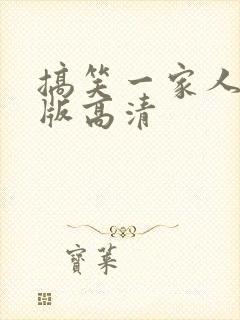 搞笑一家人
版高清
寶菓